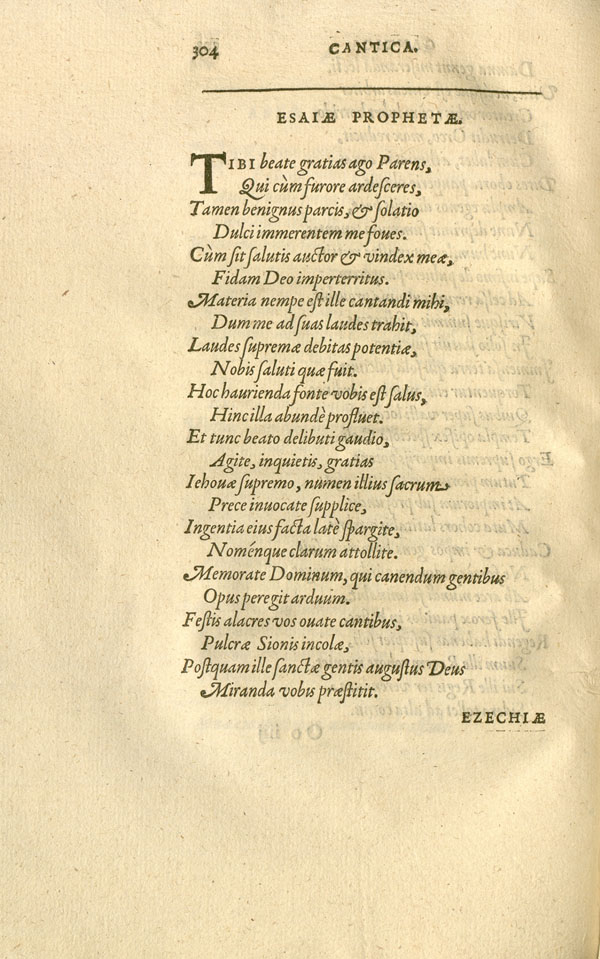 304 CANTICA.
ESAIÆ PROPHETÆ.
TIBI beate gratias ago Parens,
Qui cùm furore ardesceres,
Tamen benignus parcis, & solatio
Dulci immerentem me foues.
Cùm sit salutis auctor & vindex meæ,
Fidam Deo imperterritus.
Materia nempe est ille cantandi mihi,
Dum me ad suas laudes trahit,
Laudes supremæ debitas potentiæ,
Nobis saluti quæ fuit.
Hoc haurienda fonte vobis est salus,
Hinc illa abundè profluet.
Et tunc beato delibuti gaudio,
Agite, inquietis, gratias
Iehouæ supremo, numen illius sacrum
Prece inuocate supplice,
Ingentia eius facta latè spargite,
Noménque clarum attollite.
Memorate Dominum, qui canendum gentibus
Opus peregit arduum.
Festis alacres vos ouate cantibus,
Pulcræ Sionis incolæ,
Postquam ille sanctæ gentis augustus Deus
Miranda vobis præstitit.
EZECHIÆ